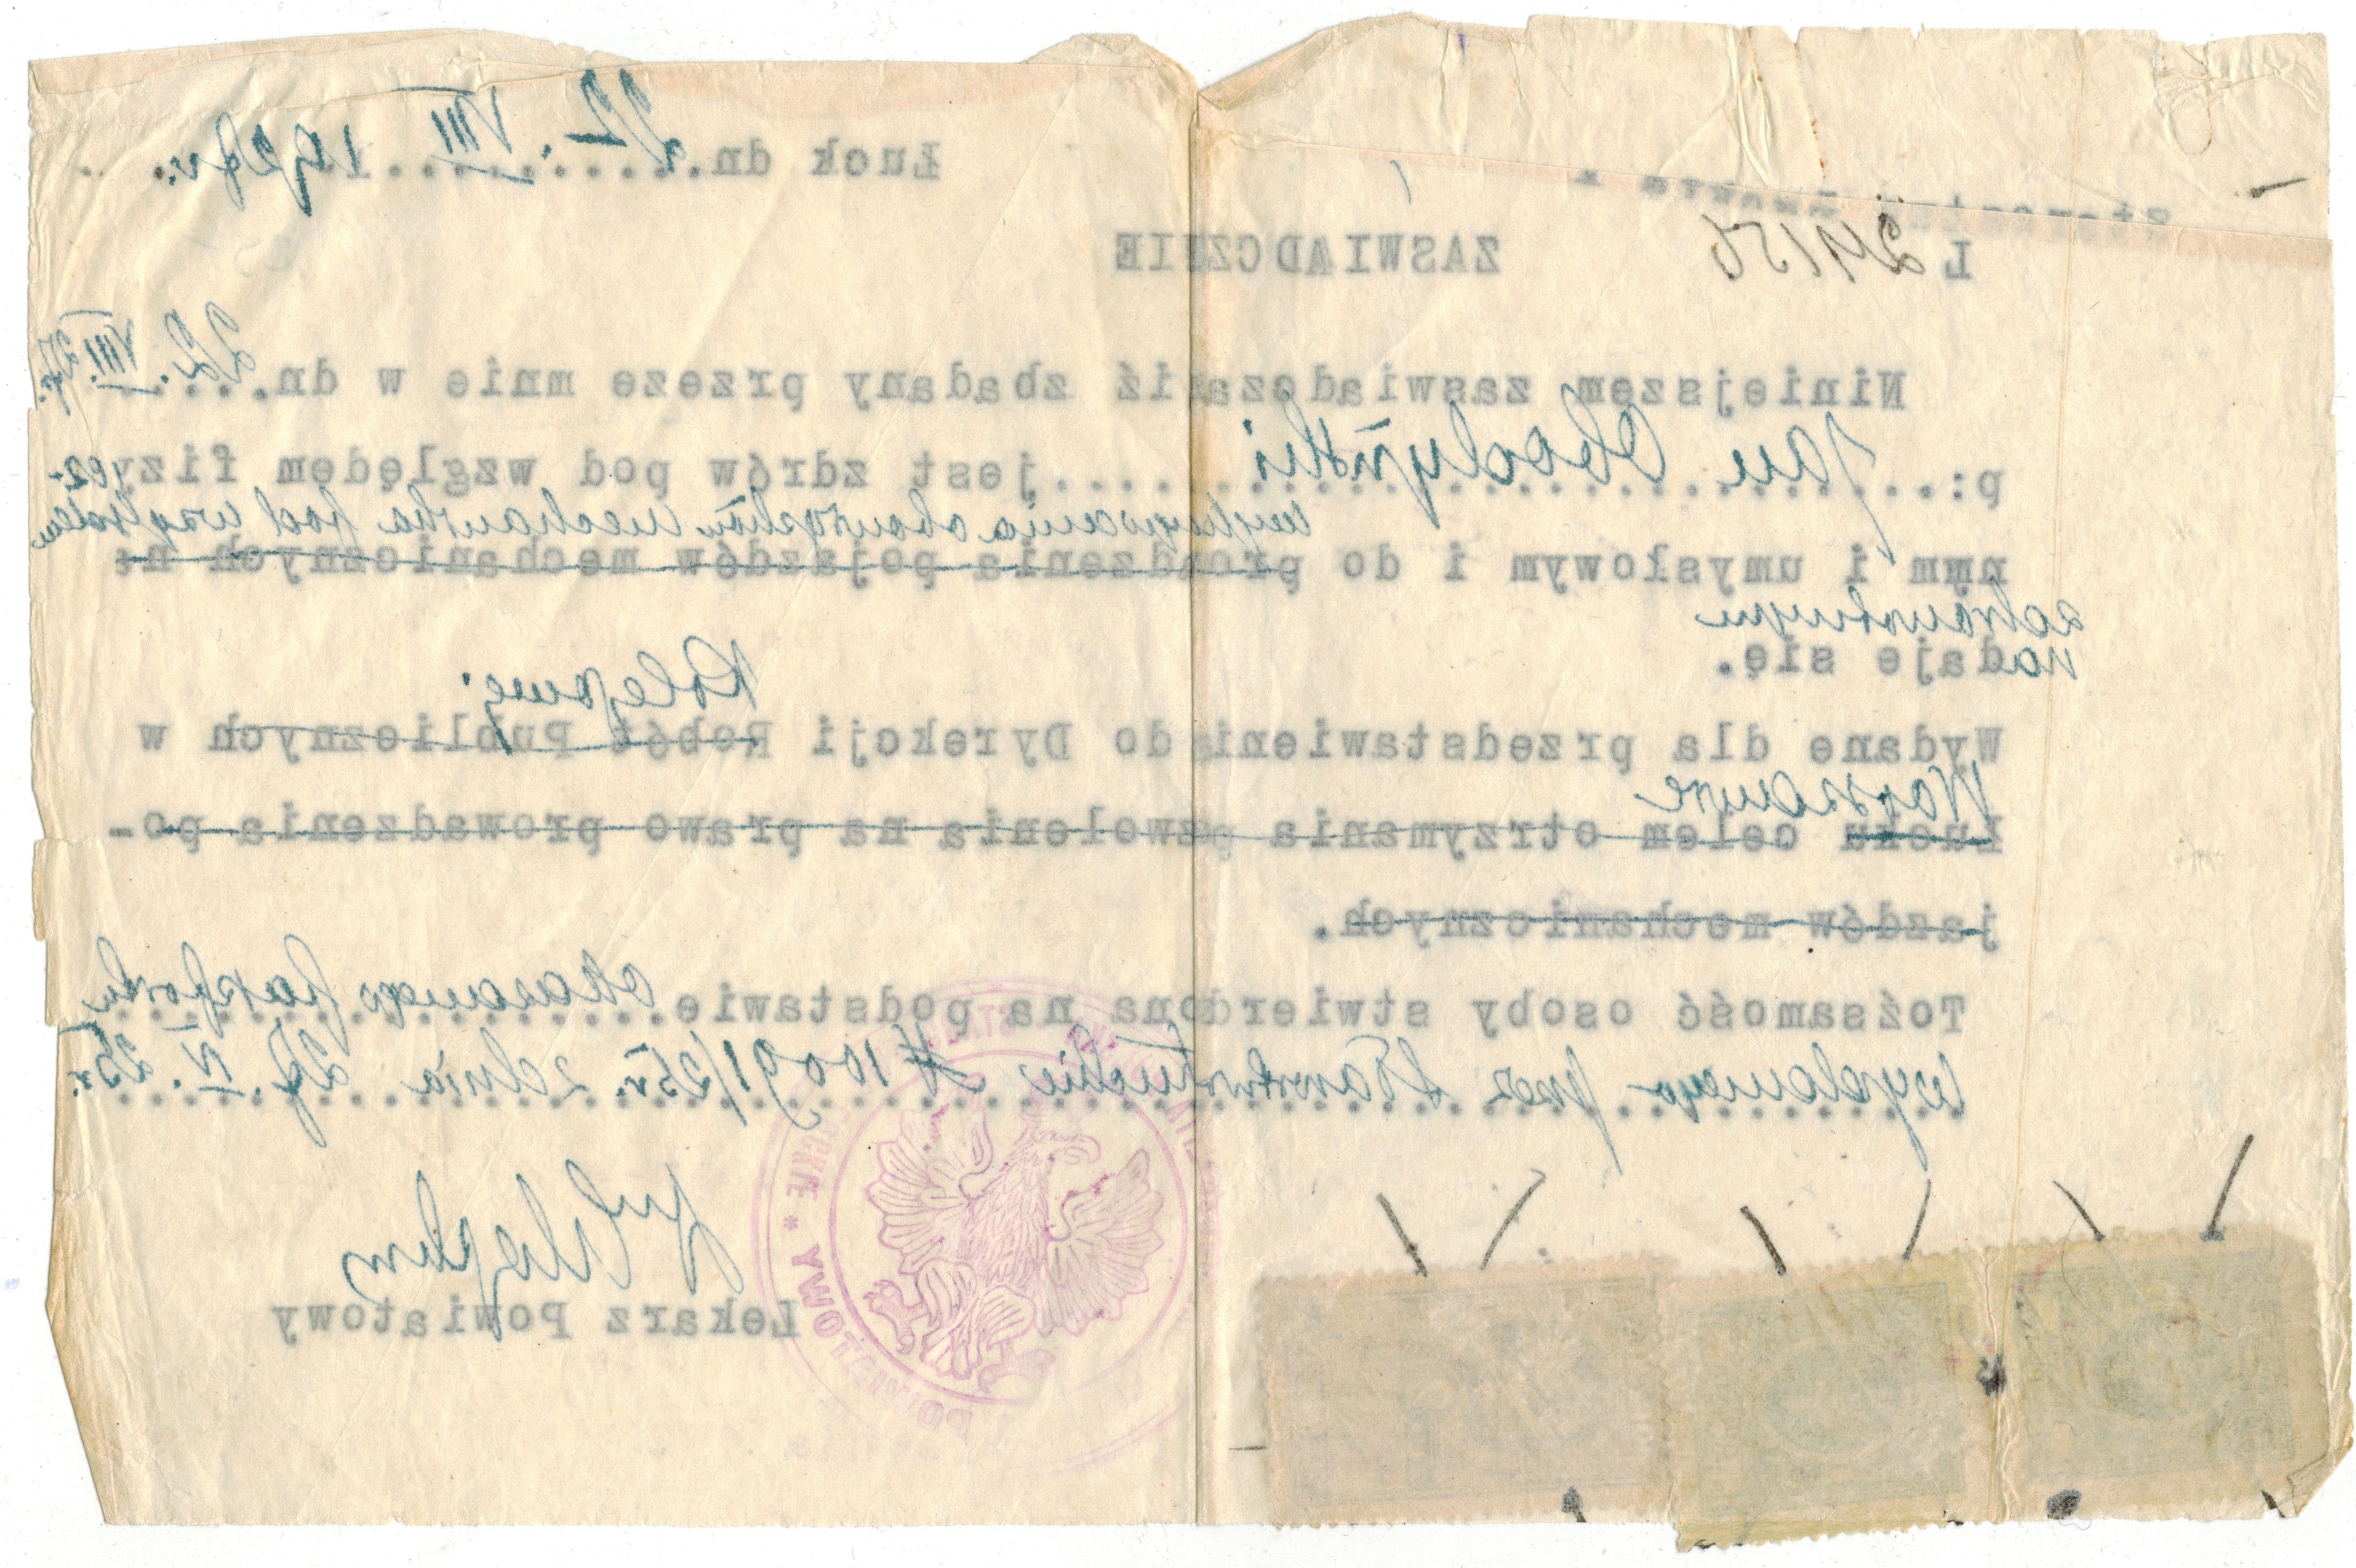 Łuck dn. 22. VIII 1927 r.
L 24156 ZASWIADCZNIE
Niniejszem zaswiadczaniź zbadany przeze mnie w dn. 22. VIII. 27 r.
p: Jan Obodyński jest zdrów pod względem fizycz-
wykonywania obowiązków mechanika pod względem
nym i umysłowym i do prowadzenia pojazdów mechanicznych
zdrowotnym
nadaje się.
Kolejowej
Wydane dla przedstawienia do Dyrekcji Robót Publicznych w
Warszawie
Łucku celem otrzymania pozwolenia na prawo prowadzenia po-
jazdów mechanicznych.
Toźsamość osoby stwierdzona na podstawie okazanego paszportu
wydanego przez Starostwo Łuckie № 10091/25 r. z dnia 29. IV. 25 r.
Lekarz Powiatowy